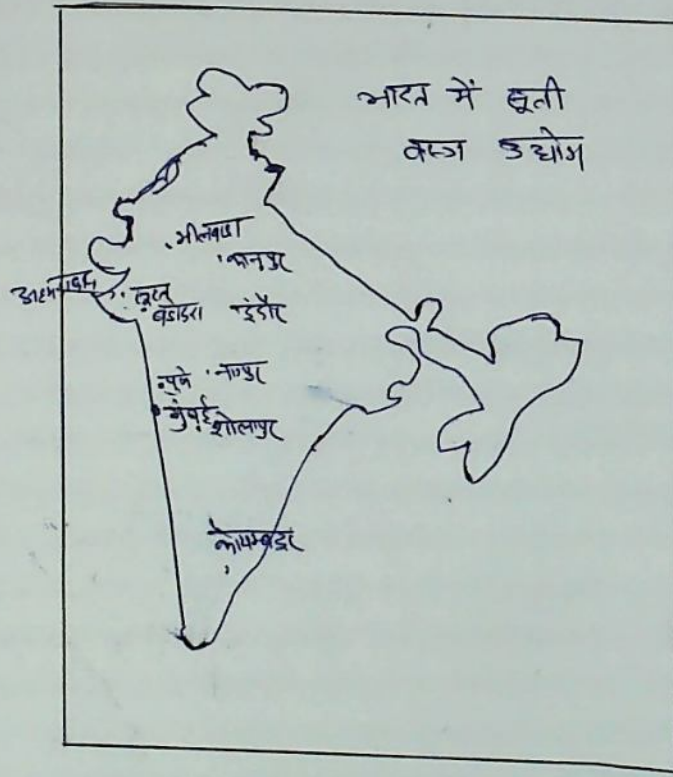 भारत में सूती
वस्त्र उद्योग
भीलवाडा
कानपुर
अहमदाबाद
सूरत
वडोदरा इंदौर
पुणे नागपुर
मुंबई शोलापुर
कोयम्बटूर